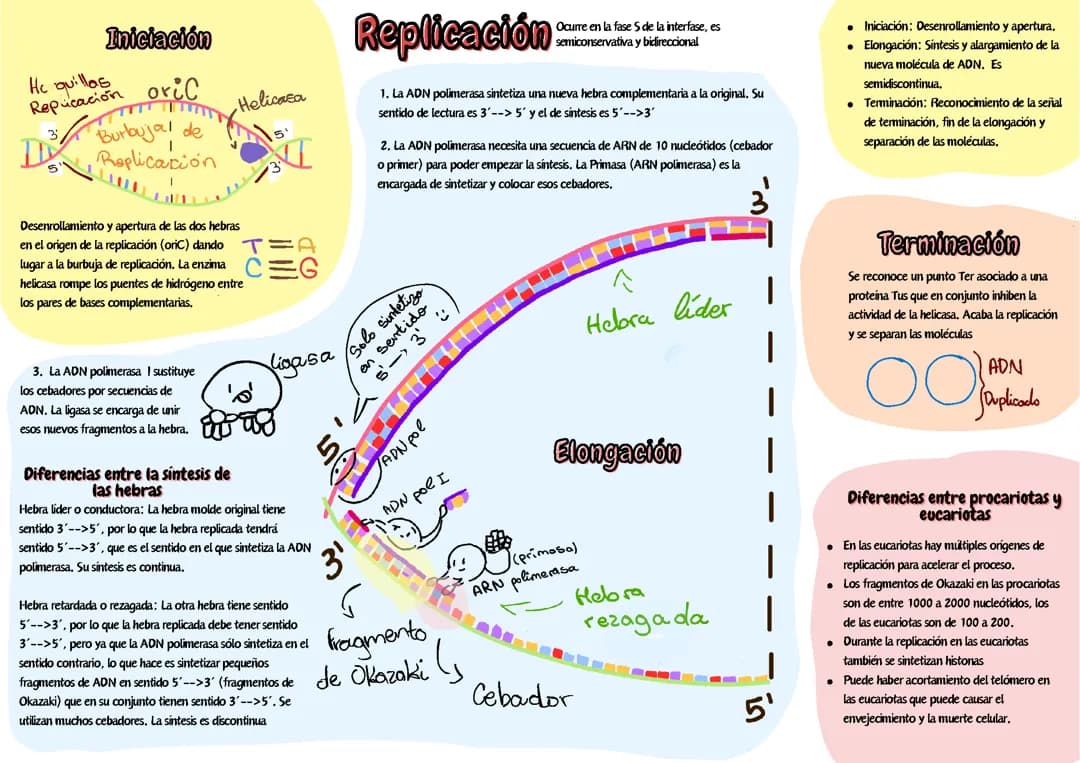 Replicación
Ocurre en la fase S de la interfase, es
semiconservativa y bidireccional
Iniciación
Replicación
oriC
Helicasa
Burbuja de
Replicación
3'
5'
5'
3'
Desenrollamiento y apertura de las dos hebras
en el origen de la replicación (oriC) dando
lugar a la burbuja de replicación. La enzima
helicasa rompe los puentes de hidrógeno entre
los pares de bases complementarias.
T A
C G
1. La ADN polimerasa sintetiza una nueva hebra complementaria a la original. Su
sentido de lectura es 3´--> 5´ y el de síntesis es 5´-->3´
2. La ADN polimerasa necesita una secuencia de ARN de 10 nucleótidos (cebador
o primer) para poder empezar la síntesis. La Primasa (ARN polimerasa) es la
encargada de sintetizar y colocar esos cebadores.
3'
Hebra líder
Solo sintetizo
en sentido
5' → 3'
5'
ADN pol
Elongación
ADN pol I
3'
(primasa)
ARN polimerasa
Hebra
rezagada
fragmento
de Okazaki
Cebador
5'
ligasa
3. La ADN polimerasa I sustituye
los cebadores por secuencias de
ADN. La ligasa se encarga de unir
esos nuevos fragmentos a la hebra.
Diferencias entre la síntesis de
las hebras
Hebra líder o conductora: La hebra molde original tiene
sentido 3´-->5´, por lo que la hebra replicada tendrá
sentido 5´-->3´, que es el sentido en el que sintetiza la ADN
polimerasa. Su síntesis es continua.
Hebra retardada o rezagada: La otra hebra tiene sentido
5´-->3´, por lo que la hebra replicada debe tener sentido
3´-->5´, pero ya que la ADN polimerasa sólo sintetiza en el
sentido contrario, lo que hace es sintetizar pequeños
fragmentos de ADN en sentido 5´-->3´ (fragmentos de
Okazaki) que en su conjunto tienen sentido 3´-->5´. Se
utilizan muchos cebadores. La síntesis es discontinua
• Iniciación: Desenrollamiento y apertura.
• Elongación: Síntesis y alargamiento de la
nueva molécula de ADN. Es
semidiscontinua.
• Terminación: Reconocimiento de la señal
de terminación, fin de la elongación y
separación de las moléculas.
Terminación
Se reconoce un punto Ter asociado a una
proteína Tus que en conjunto inhiben la
actividad de la helicasa. Acaba la replicación
y se separan las moléculas
ADN
Duplicado
Diferencias entre procariotas y
eucariotas
• En las eucariotas hay múltiples orígenes de
replicación para acelerar el proceso.
• Los fragmentos de Okazaki en las procariotas
son de entre 1000 a 2000 nucleótidos, los
de las eucariotas son de 100 a 200.
• Durante la replicación en las eucariotas
también se sintetizan histonas
• Puede haber acortamiento del telómero en
las eucariotas que puede causar el
envejecimiento y la muerte celular.